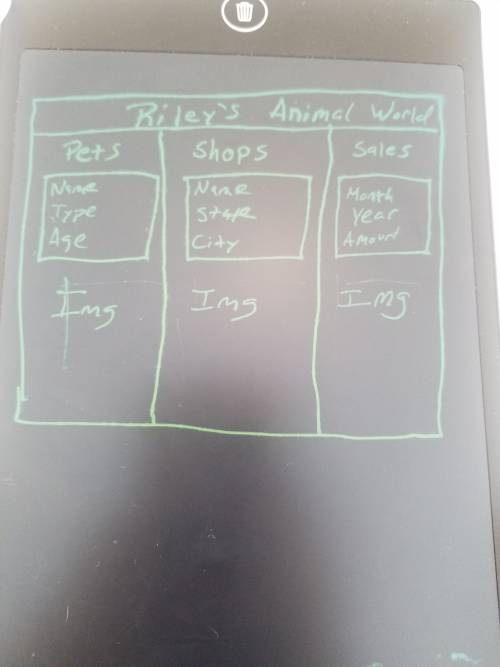 Riley's Animal World
Pets
Name
Type
Age
Img
Shops
Name
State
City
Img
Sales
Month
Year
Amount
Img